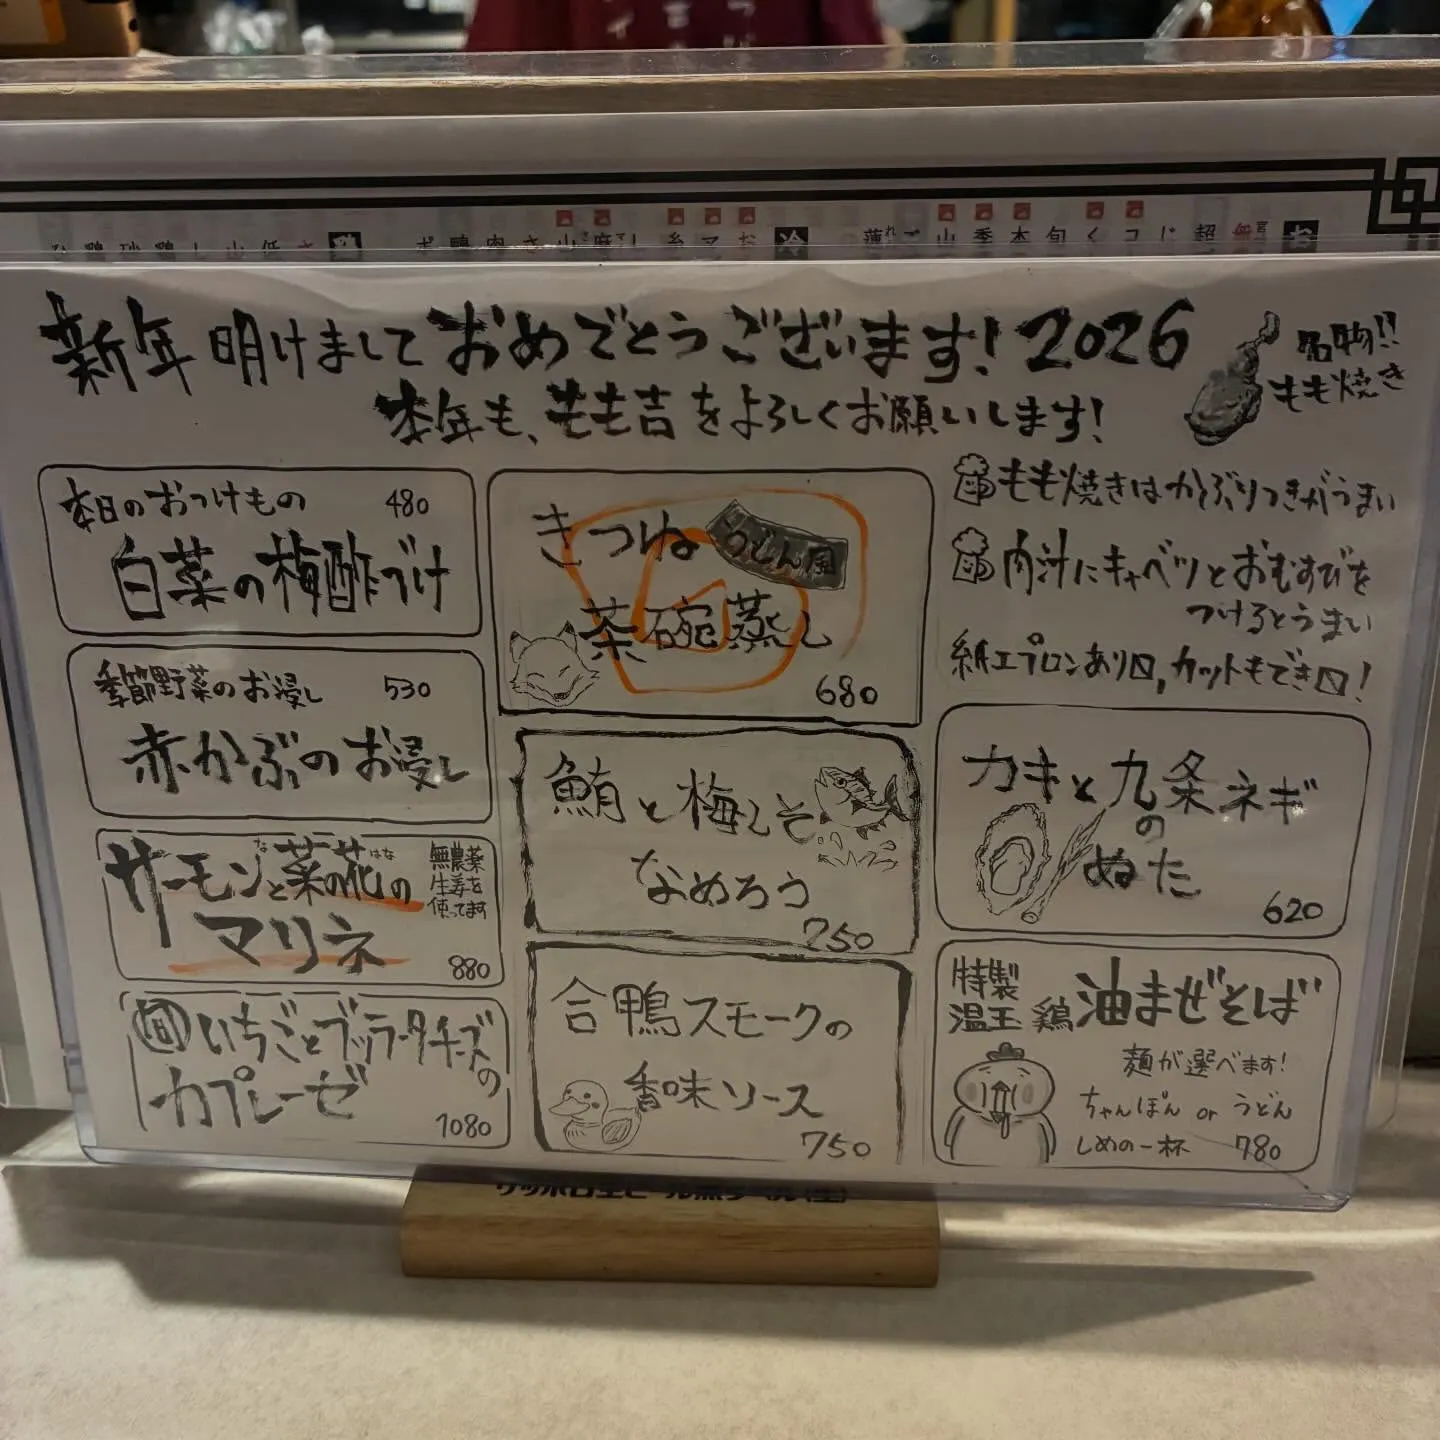 新年 明けまして おめでとうございます! 2026
本年も、もも吉をよろしくお願いします!
名物!!
もも焼き
本日のおつけもの 480
白菜の梅酢づけ
季節野菜のお浸し 530
赤かぶのお浸し
サーモンと菜の花の
なはな
マリネ
無農薬
生姜を
使ってます
880
旬いちごとブッラータチーズの
カプレーゼ
1080
きつねうどん風
茶碗蒸し
680
鮪と梅しそ
なめろう
750
合鴨スモークの
香味ソース
750
もも焼きはかぶりつきがうまい
肉汁にキャベツとおむすびを
つけるとうまい
紙エプロンあり〼,カットもでき〼!
カキと九条ネギ
の
ぬた
620
特製
温玉 鶏油まぜそば
麺が選べます!
ちゃんぽん or うどん
しめの一杯 780